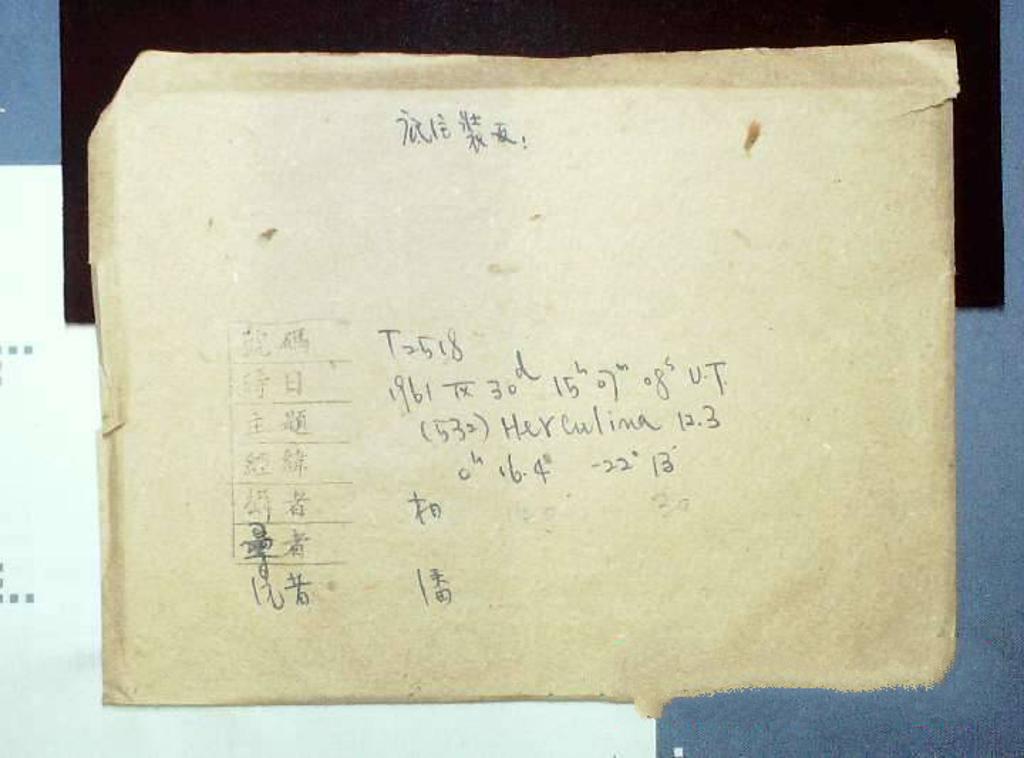 底片裝反!
號碼 T2518
時日 1961 IX 30ᵈ 15ʰ 07ᵐ 08ˢ U.T.
主題 (532) Herculina 12.3
經緯 0ʰ 16.4ᵐ -22° 13′
攝者
量者
洗者 潘